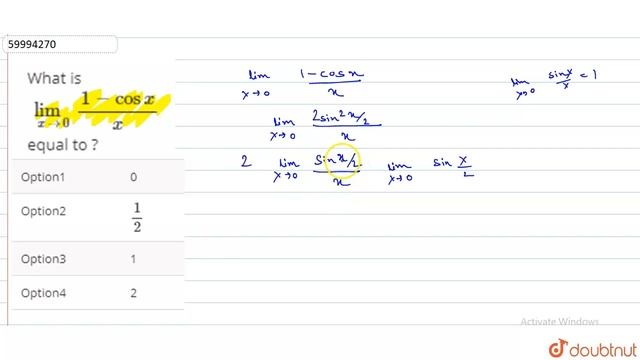 59994270
What is
lim x→0 (1 − cos x)/x
equal to ?
Option1 0
Option2 1/2
Option3 1
Option4 2
lim x→0 (1 − cos x)/x
lim x→0 (2 sin² x/2)/x
2 lim x→0 (sin x/2)/x lim x→0 sin x/2
lim x→0 sin x/x = 1
Activate Windows
doubtnut